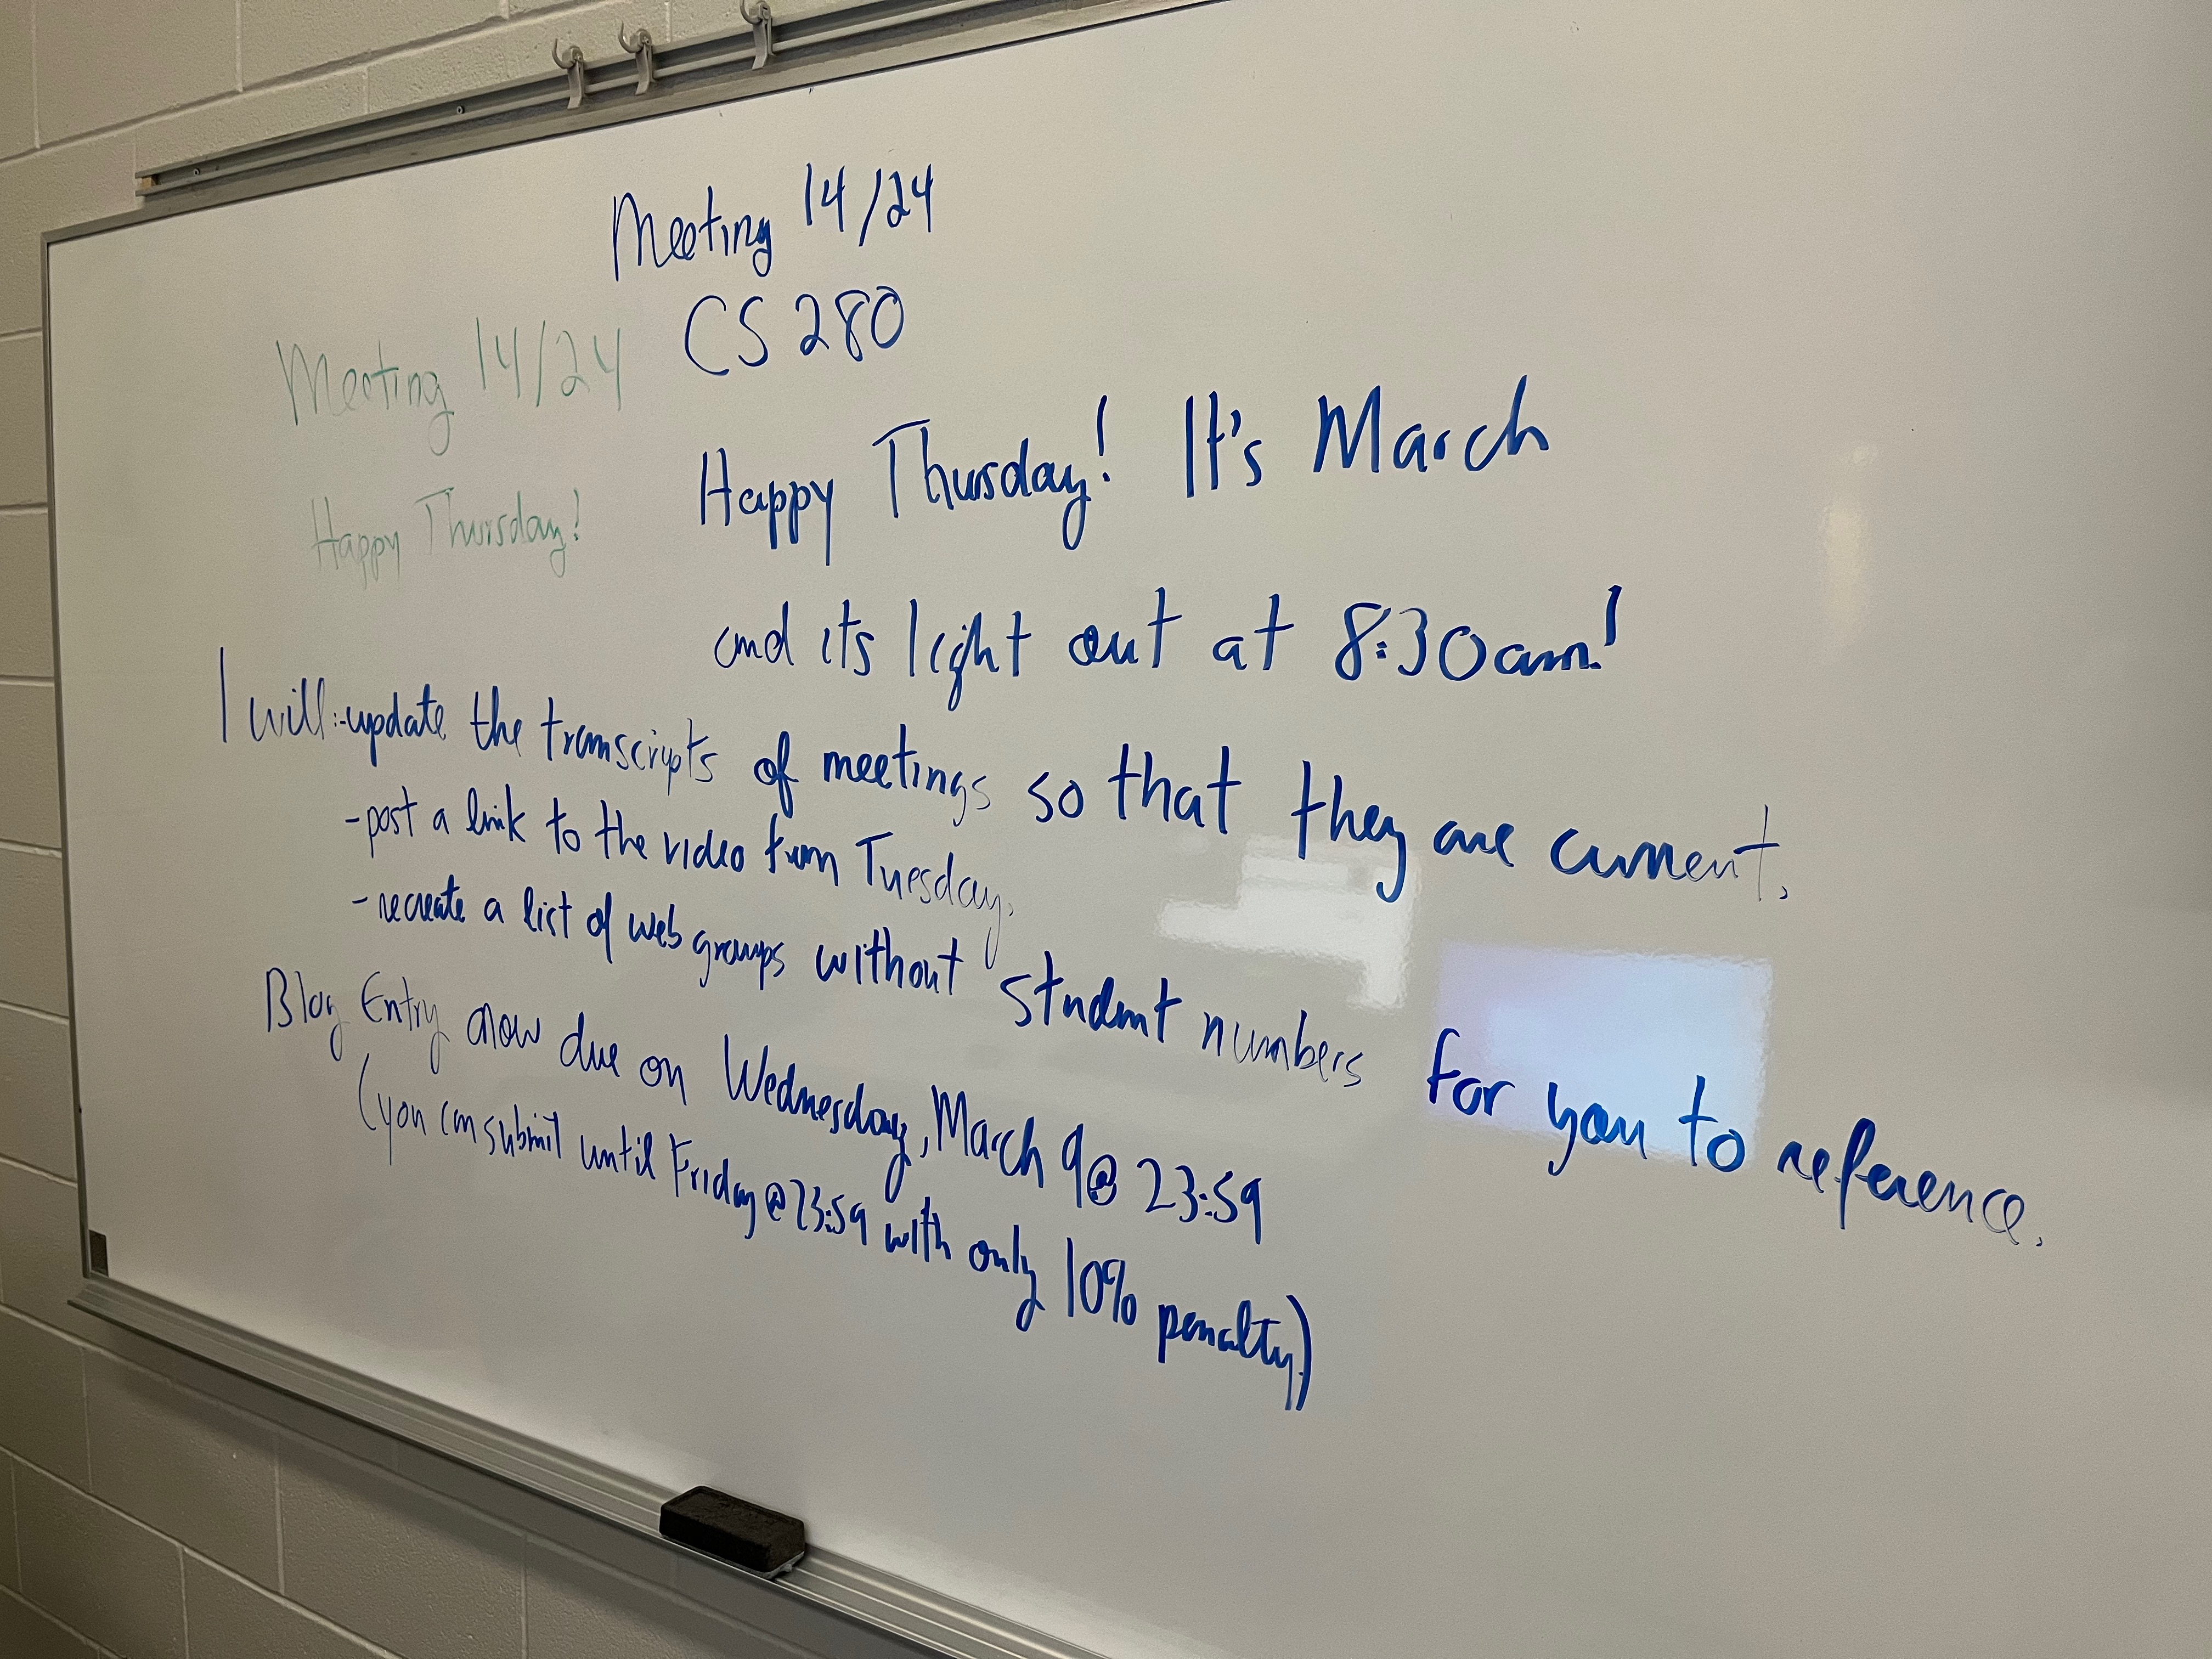 Meeting 14/24
CS 280
Meeting 14/24
Happy Thursday!
Happy Thursday! It's March
and its light out at 8:30am!
I will: -update the transcripts of meetings so that they are current.
-post a link to the video from Tuesday.
-recreate a list of web groups without student numbers for you to reference.
Blog Entry now due on Wednesday, March 9 @ 23:59
(you can submit until Friday @ 23:59 with only 10% penalty)